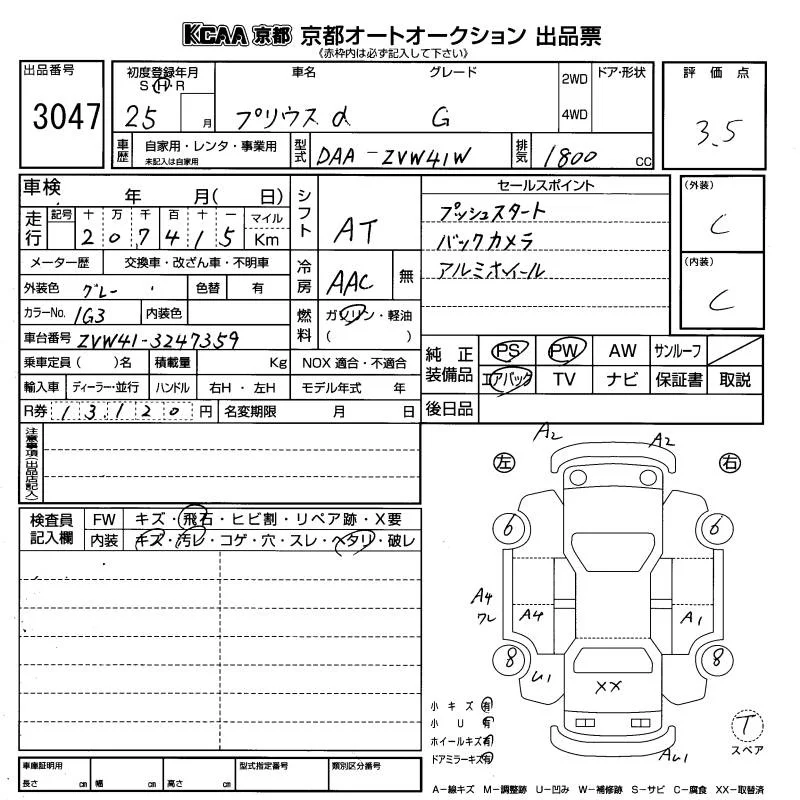 KCAA 京都 京都オートオークション 出品票
《赤枠内は必ず記入して下さい》
出品番号
3047
初度登録年月
S H R
25 月
車名
グレード
プリウスα G
2WD
4WD
ドア・形状
評価点
3.5
車歴
自家用・レンタ・事業用
未記入は自家用
型式
DAA-ZVW41W
排気
1800 CC
車検 年 月( 日)
走行
記号 十 万 千 百 十 一
2 0 7 4 1 5
マイル
Km
メーター歴 交換車・改ざん車・不明車
外装色 グレー
色替 有
カラーNo. 1G3
内装色
車台番号 ZVW41-3247359
乗車定員( )名 積載量 Kg
輸入車 ディーラー・並行 ハンドル 右H・左H
R券 13120円 名変期限 月 日
シフト
AT
冷房
AAC 無
燃料
ガソリン・軽油
( )
NOX 適合・不適合
モデル年式 年
セールスポイント
プッシュスタート
バックカメラ
アルミホイール
(外装)
C
(内装)
C
純正装備品
PS PW AW サンルーフ
エアバック TV ナビ 保証書 取説
後日品
注意事項(出品店記入)
検査員記入欄
FW キズ・飛石・ヒビ割・リペア跡・X要
内装 キズ・汚レ・コゲ・穴・スレ・ヘタリ・破レ
左
右
A2 A2
6 6
A4
ワレ
A4 A1
8 8
U1
XX
AU1
小キズ有
小U有
ホイールキズ有
ドアミラーキズ有
T
スペア
車庫証明用
長さ cm 幅 cm 高さ cm
型式指定番号
類別区分番号
A-線キズ M-調整跡 U-凹み W-補修跡 S-サビ C-腐食 XX-取替済